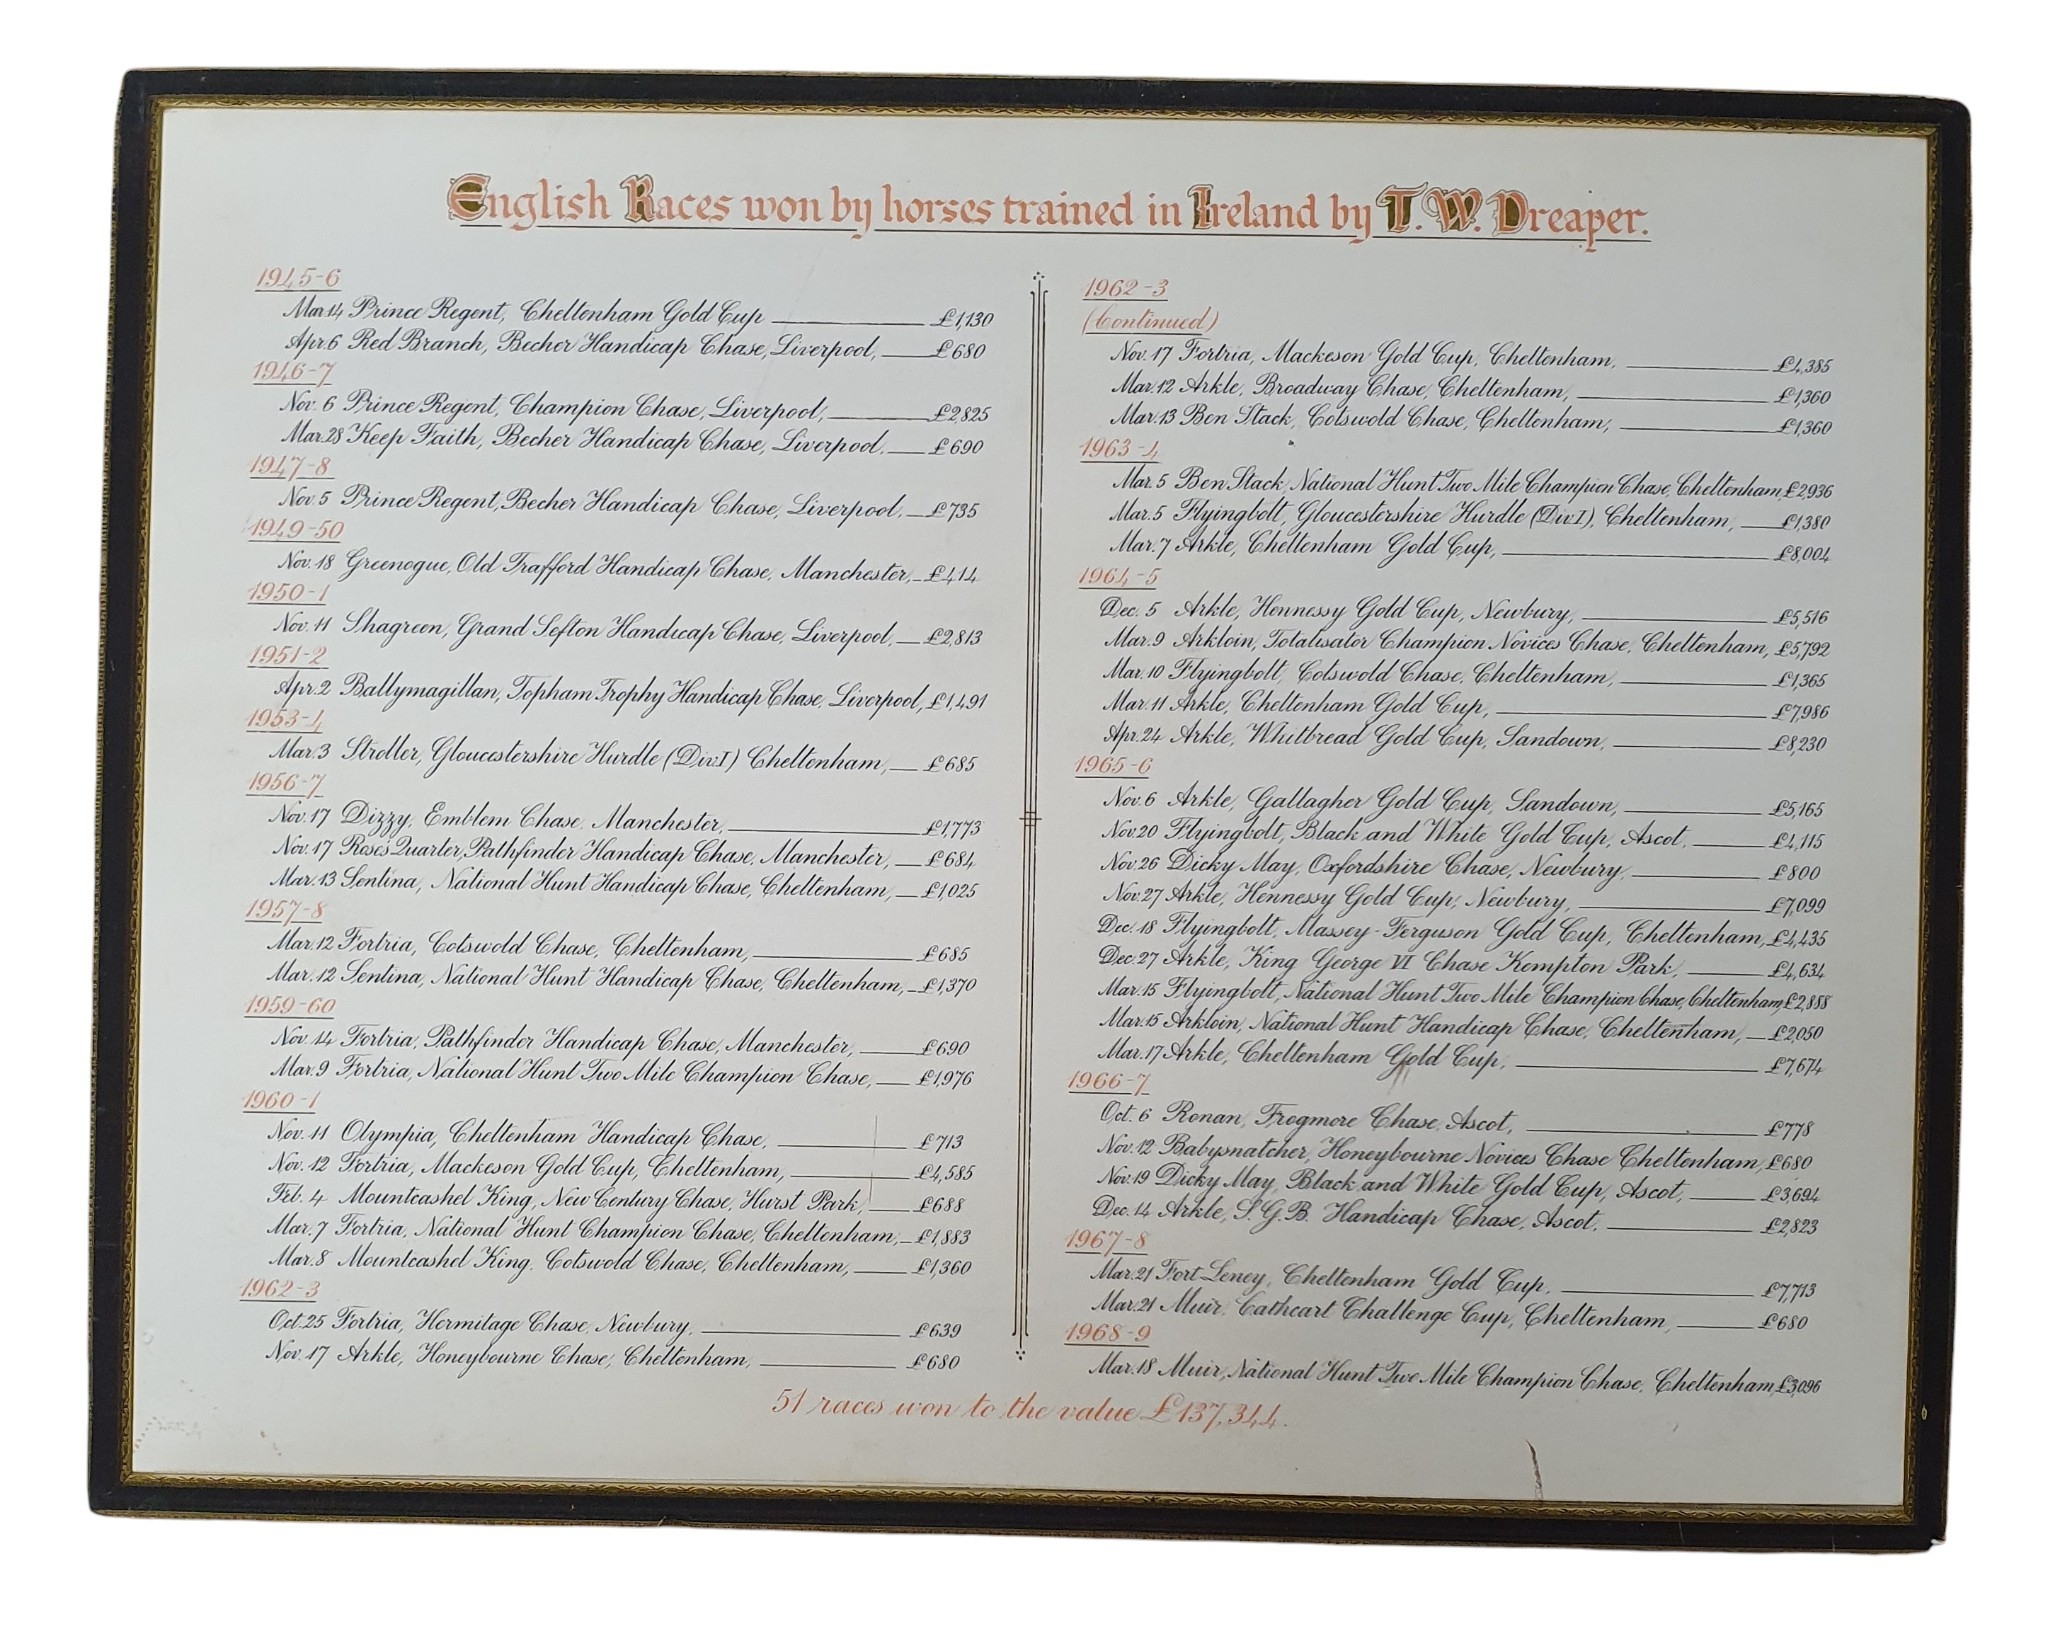 English Races won by horses trained in Ireland by T. W. Dreaper.
1945-6
Mar. 14 Prince Regent, Cheltenham Gold Cup £1,130
Apr. 6 Red Branch, Becher Handicap Chase, Liverpool, £680
1946-7
Nov. 6 Prince Regent, Champion Chase, Liverpool, £2,825
Mar. 28 Keep Faith, Becher Handicap Chase, Liverpool. £690
1947-8
Nov. 5 Prince Regent, Becher Handicap Chase, Liverpool. £735
1949-50
Nov. 18 Greenogue, Old Trafford Handicap Chase, Manchester, £414
1950-1
Nov. 11 Shagreen, Grand Sefton Handicap Chase, Liverpool, £2,813
1951-2
Apr. 2 Ballymagillan, Topham Trophy Handicap Chase, Liverpool, £1,491
1953-4
Mar. 3 Stroller, Gloucestershire Hurdle (Div.I) Cheltenham, £685
1956-7
Nov. 17 Dizzy, Emblem Chase, Manchester, £1,773
Nov. 17 Roses Quarter, Pathfinder Handicap Chase, Manchester, £684
Mar. 13 Sentina, National Hunt Handicap Chase, Cheltenham, £1,025
1957-8
Mar. 12 Fortria, Cotswold Chase, Cheltenham, £685
Mar. 12 Sentina, National Hunt Handicap Chase, Cheltenham, £1,370
1959-60
Nov. 14 Fortria, Pathfinder Handicap Chase, Manchester, £690
Mar. 9 Fortria, National Hunt Two Mile Champion Chase, £1,976
1960-1
Nov. 11 Olympia, Cheltenham Handicap Chase, £713
Nov. 12 Fortria, Mackeson Gold Cup, Cheltenham, £4,585
Feb. 4 Mountcashel King, New Century Chase, Hurst Park, £688
Mar. 7 Fortria, National Hunt Champion Chase, Cheltenham, £1,883
Mar. 8 Mountcashel King, Cotswold Chase, Cheltenham, £1,360
1962-3
Oct. 25 Fortria, Hermitage Chase, Newbury, £639
Nov. 17 Arkle, Honeybourne Chase, Cheltenham, £680
1962-3
(Continued)
Nov. 17 Fortria, Mackeson Gold Cup, Cheltenham, £4,385
Mar. 12 Arkle, Broadway Chase, Cheltenham, £1,360
Mar. 13 Ben Stack, Cotswold Chase, Cheltenham, £1,360
1963-4
Mar. 5 Ben Stack, National Hunt Two Mile Champion Chase, Cheltenham, £2,936
Mar. 5 Flyingbolt, Gloucestershire Hurdle (Div.I), Cheltenham, £1,380
Mar. 7 Arkle, Cheltenham Gold Cup, £8,004
1964-5
Dec. 5 Arkle, Hennessy Gold Cup, Newbury, £5,516
Mar. 9 Arkloin, Totalisator Champion Novices Chase, Cheltenham, £5,792
Mar. 10 Flyingbolt, Cotswold Chase, Cheltenham, £1,365
Mar. 11 Arkle, Cheltenham Gold Cup, £7,986
Apr. 24 Arkle, Whitbread Gold Cup, Sandown, £8,230
1965-6
Nov. 6 Arkle, Gallagher Gold Cup, Sandown, £5,165
Nov. 20 Flyingbolt, Black and White Gold Cup, Ascot, £4,115
Nov. 26 Dicky May, Oxfordshire Chase, Newbury, £800
Nov. 27 Arkle, Hennessy Gold Cup, Newbury, £7,099
Dec. 18 Flyingbolt, Massey-Ferguson Gold Cup, Cheltenham, £4,435
Dec. 27 Arkle, King George VI Chase Kempton Park, £4,634
Mar. 15 Flyingbolt, National Hunt Two Mile Champion Chase, Cheltenham, £2,888
Mar. 15 Arkloin, National Hunt Handicap Chase, Cheltenham, £2,050
Mar. 17 Arkle, Cheltenham Gold Cup, £7,674
1966-7
Oct. 6 Ronan, Frogmore Chase, Ascot, £778
Nov. 12 Babysnatcher, Honeybourne Novices Chase Cheltenham, £680
Nov. 19 Dicky May, Black and White Gold Cup, Ascot, £3,694
Dec. 14 Arkle, S.G.B. Handicap Chase, Ascot, £2,823
1967-8
Mar. 21 Fort Leney, Cheltenham Gold Cup, £7,713
Mar. 21 Muir, Cathcart Challenge Cup, Cheltenham, £680
1968-9
Mar. 18 Muir, National Hunt Two Mile Champion Chase, Cheltenham, £3,096
51 races won to the value £137,344.